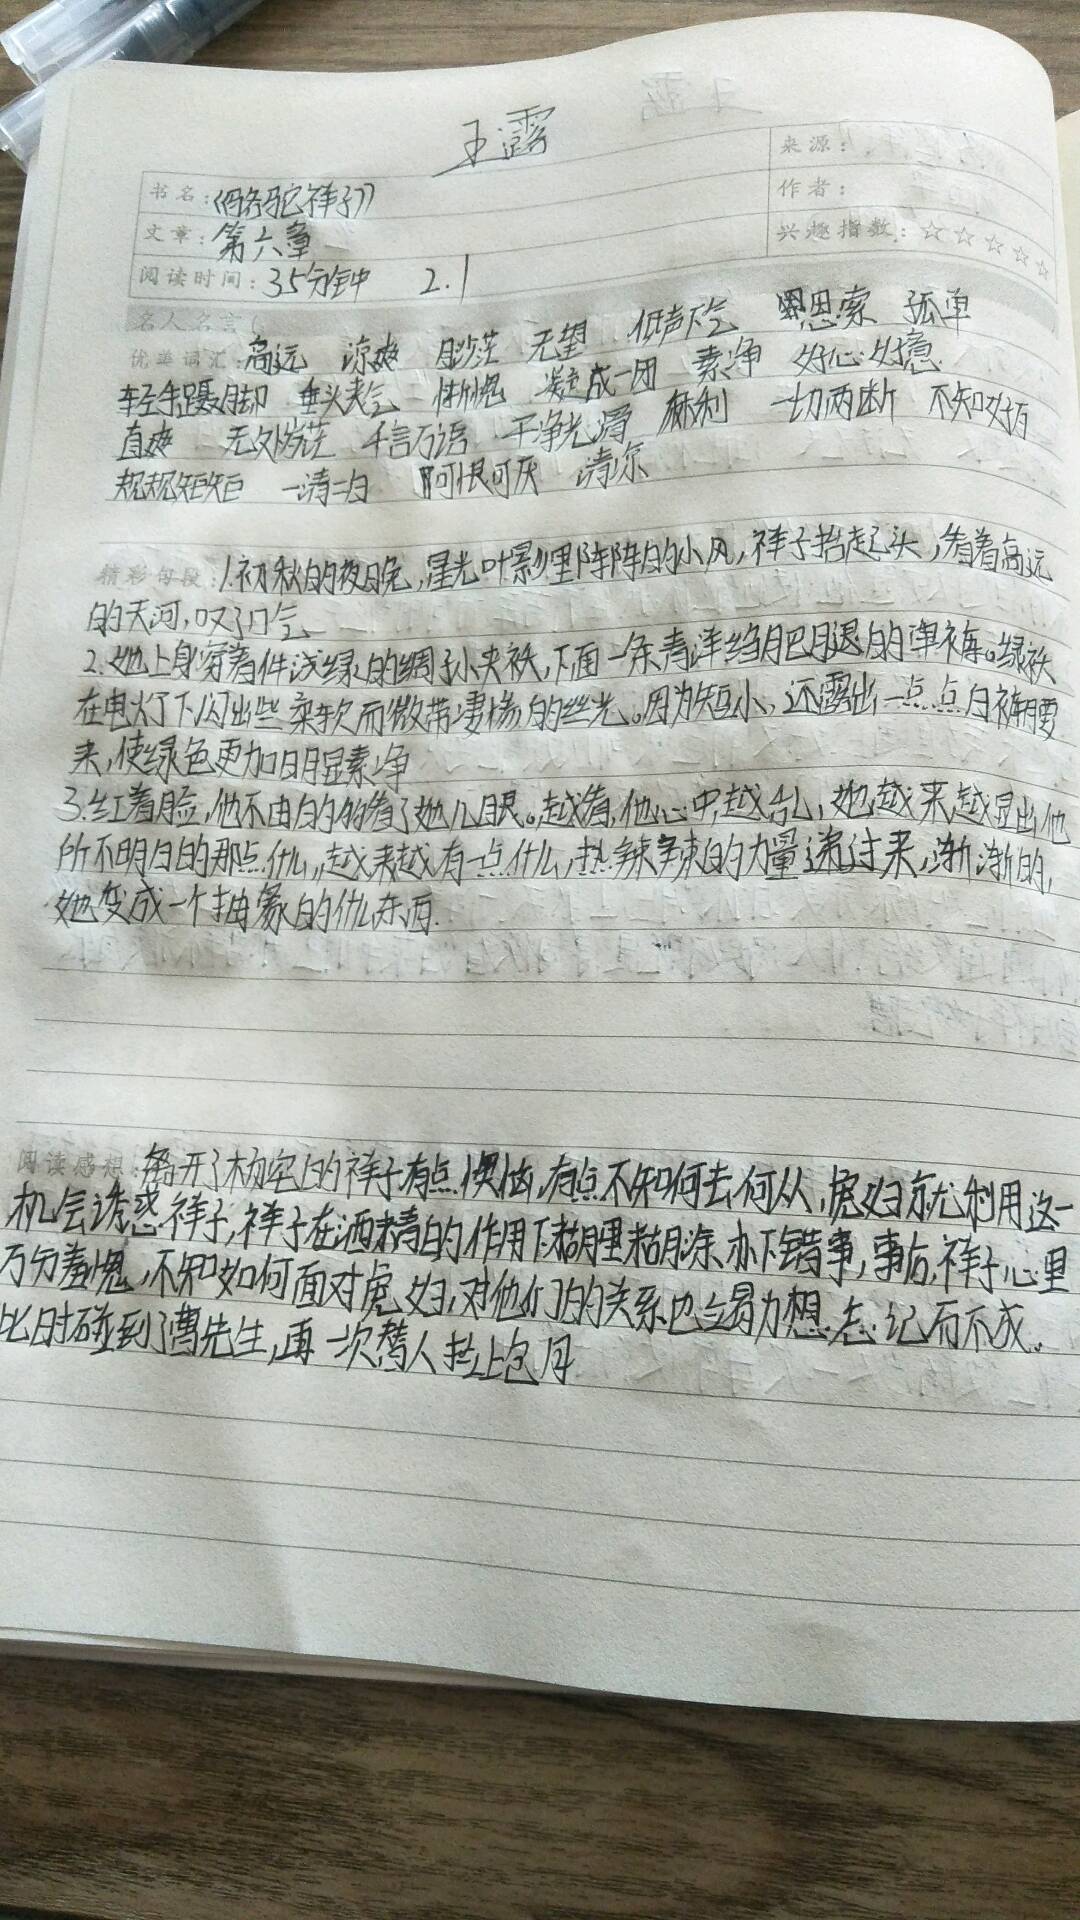 王露
书名：《骆驼祥子》
来源：
作者：
文章：第六章
兴趣指数：☆☆☆☆☆
阅读时间：35分钟 2.1
名人名言：
优美词汇：高远 凉爽 渺茫 无望 低声下气 思索 孤单
轻手蹑脚 垂头丧气 惭愧 凝成一团 素净 好心好意
直爽 无处 千言万语 干净光滑 麻利 一切两断 不知好歹
规规矩矩 一清二白 可恨可厌 清凉
精彩句段：1.初秋的夜晚，星光叶影里阵阵的小风，祥子抬起头，看着高远
的天河，叹了口气
2.她上身穿着件浅绿的绸子小夹袄，下面一条青洋绉肥腿的单裤。绿袄
在电灯下闪出些柔软而微带凄惨的丝光。因为短小，还露出一点点白裤腰
来，使绿色更加明显素净
3.红着脸，他不由的多看了她几眼。越看，他心中越乱，她越来越显出他
所不明白的那点什么，越来越有一点什么，热辣辣的力量递过来，渐渐的，
她变成一个抽象的什么东西.
阅读感想：离开了杨宅的祥子有点懊恼，有点不知何去何从，虎妞就利用这一
机会诱惑祥子，祥子在酒精的作用下糊里糊涂办下错事，事后，祥子心里
万分羞愧，不知如何面对虎妞，对他们的关系也竭力想忘记而不成。
此时碰到了曹先生，再一次替人拉上包月